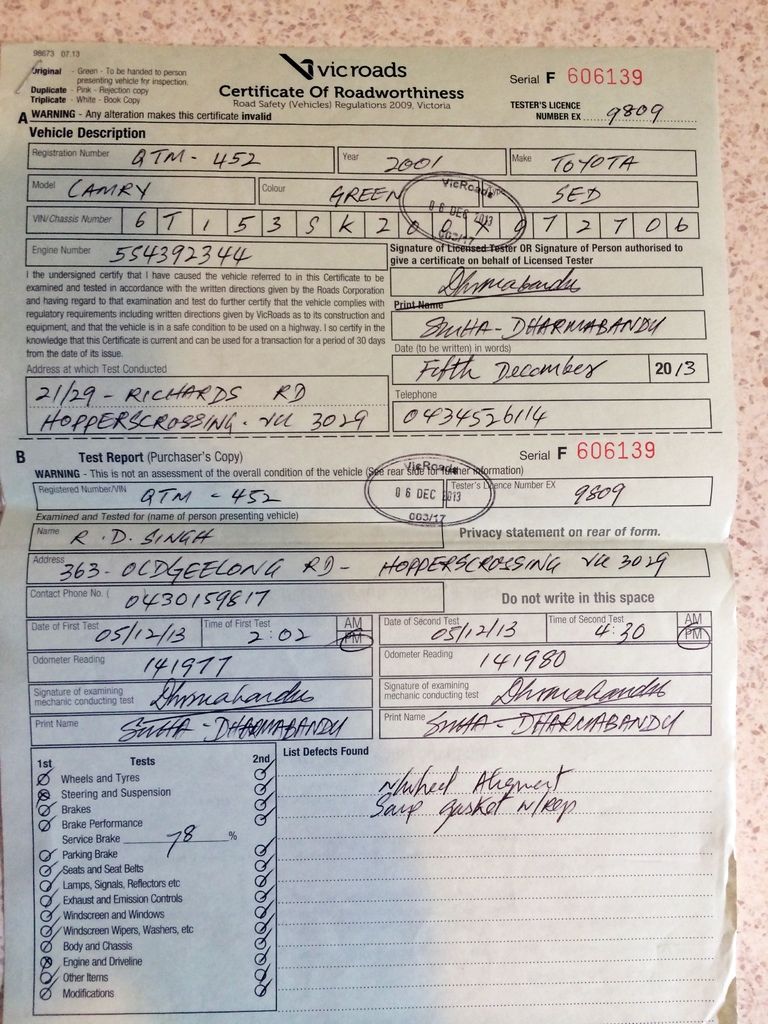 98673 07.13
Original - Green - To be handed to person presenting vehicle for inspection.
Duplicate - Pink - Rejection copy
Triplicate - White - Book Copy
vicroads
Certificate Of Roadworthiness
Road Safety (Vehicles) Regulations 2009, Victoria
Serial F 606139
TESTER'S LICENCE NUMBER EX 9809
A WARNING - Any alteration makes this certificate invalid
Vehicle Description
Registration Number QTM - 452 Year 2001 Make TOYOTA
Model CAMRY Colour GREEN SED
VIN/Chassis Number 6 T 1 5 3 S K 2 0 X 9 7 2 7 0 6
VicRoads
06 DEC 2013
003/17
Engine Number 554392344
Signature of Licensed Tester OR Signature of Person authorised to
give a certificate on behalf of Licensed Tester
Dhrmabandu
I the undersigned certify that I have caused the vehicle referred to in this Certificate to be
examined and tested in accordance with the written directions given by the Roads Corporation
and having regard to that examination and test do further certify that the vehicle complies with
regulatory requirements including written directions given by VicRoads as to its construction and
equipment, and that the vehicle is in a safe condition to be used on a highway. I so certify in the
knowledge that this Certificate is current and can be used for a transaction for a period of 30 days
from the date of its issue.
Print Name
DHARMABANDU
Date (to be written) in words)
Fifth December 2013
Address at which Test Conducted
21/29 - RICHARDS RD
HOPPERSCROSSING - VIC 3029
Telephone
0434526114
B Test Report (Purchaser's Copy)
Serial F 606139
WARNING - This is not an assessment of the overall condition of the vehicle (See rear side for further information)
Registered Number/VIN QTM - 452
VicRoads
06 DEC 2013
003/17
Tester's Licence Number EX 9809
Examined and Tested for (name of person presenting vehicle)
Name R.D. SINGH
Privacy statement on rear of form.
Address 363 - OLDGEELONG RD - HOPPERSCROSSING VIC 3029
Contact Phone No. ( 0430159817
Do not write in this space
Date of First Test 05/12/13 Time of First Test 2:02 AM PM
Date of Second Test 05/12/13 Time of Second Test 4:30 AM PM
Odometer Reading 141977
Odometer Reading 141980
Signature of examining mechanic conducting test Dhrmabandu
Signature of examining mechanic conducting test Dhrmabandu
Print Name DHARMABANDU
Print Name DHARMABANDU
1st Tests 2nd
List Defects Found
Wheels and Tyres
Steering and Suspension
Brakes
Brake Performance
Service Brake 78 %
Parking Brake
Seats and Seat Belts
Lamps, Signals, Reflectors etc
Exhaust and Emission Controls
Windscreen and Windows
Windscreen Wipers, Washers, etc
Body and Chassis
Engine and Driveline
Other Items
Modifications
N/wheel Alignment
gasket N/Rep